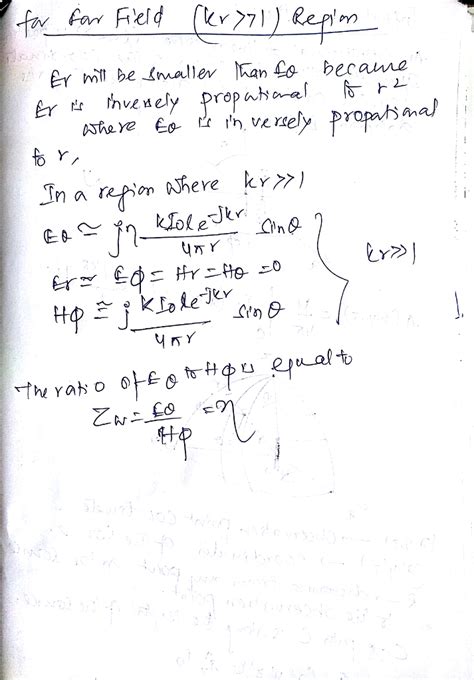 for far Field (kr>>1) Region
Er will be smaller than Eθ because
Er is inversely propational to r²
where Eθ is inversely propational
to r,
In a region where kr>>1
Eθ ≃ jη kI₀le^-jkr / 4πr sinθ
Er ≃ Eφ = Hr = Hθ = 0
kr>>1
Hφ ≃ j kI₀le^-jkr / 4πr sinθ
The ratio of Eθ to Hφ is equal to
Zw = Eθ / Hφ = η